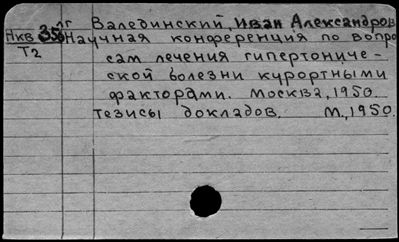 лг Валединский, Иван Александров
Нкв 35 Научная конференция по вопро
Т2 сам лечения гипертониче-
ской болезни курортными
факторами. Москва, 1950.
тезисы докладов. М., 1950.